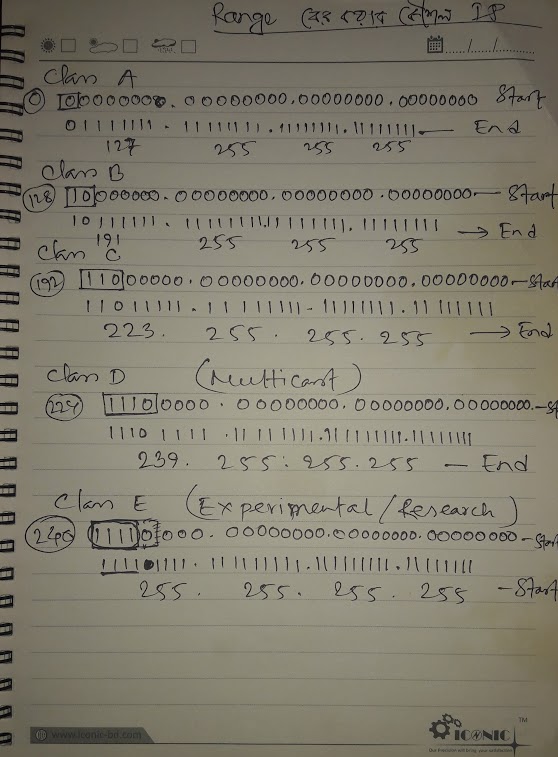 Range বের করার কৌশল IP
Class A
0 00000000. 00000000.00000000.00000000 Start
01111111. 11111111.11111111.11111111. End
127 255 255 255
Class B
128 10000000. 00000000.00000000.00000000 Start
10111111. 11111111.11111111.11111111 → End
191 255 255 255
Class C
192 11000000. 00000000.00000000.00000000 - Start
11011111. 11111111.11111111.11111111
223. 255. 255. 255 → End
Class D (Multicast)
224 11100000. 00000000.00000000.00000000. - St
11101111. 11111111.11111111.11111111
239. 255. 255. 255 - End
Class E (Experimental/Research)
240 11110000. 00000000.00000000.00000000 - Start
11111111. 11111111.11111111.11111111
255. 255. 255. 255 - Start
www.iconic-bd.com
ICONIC TM